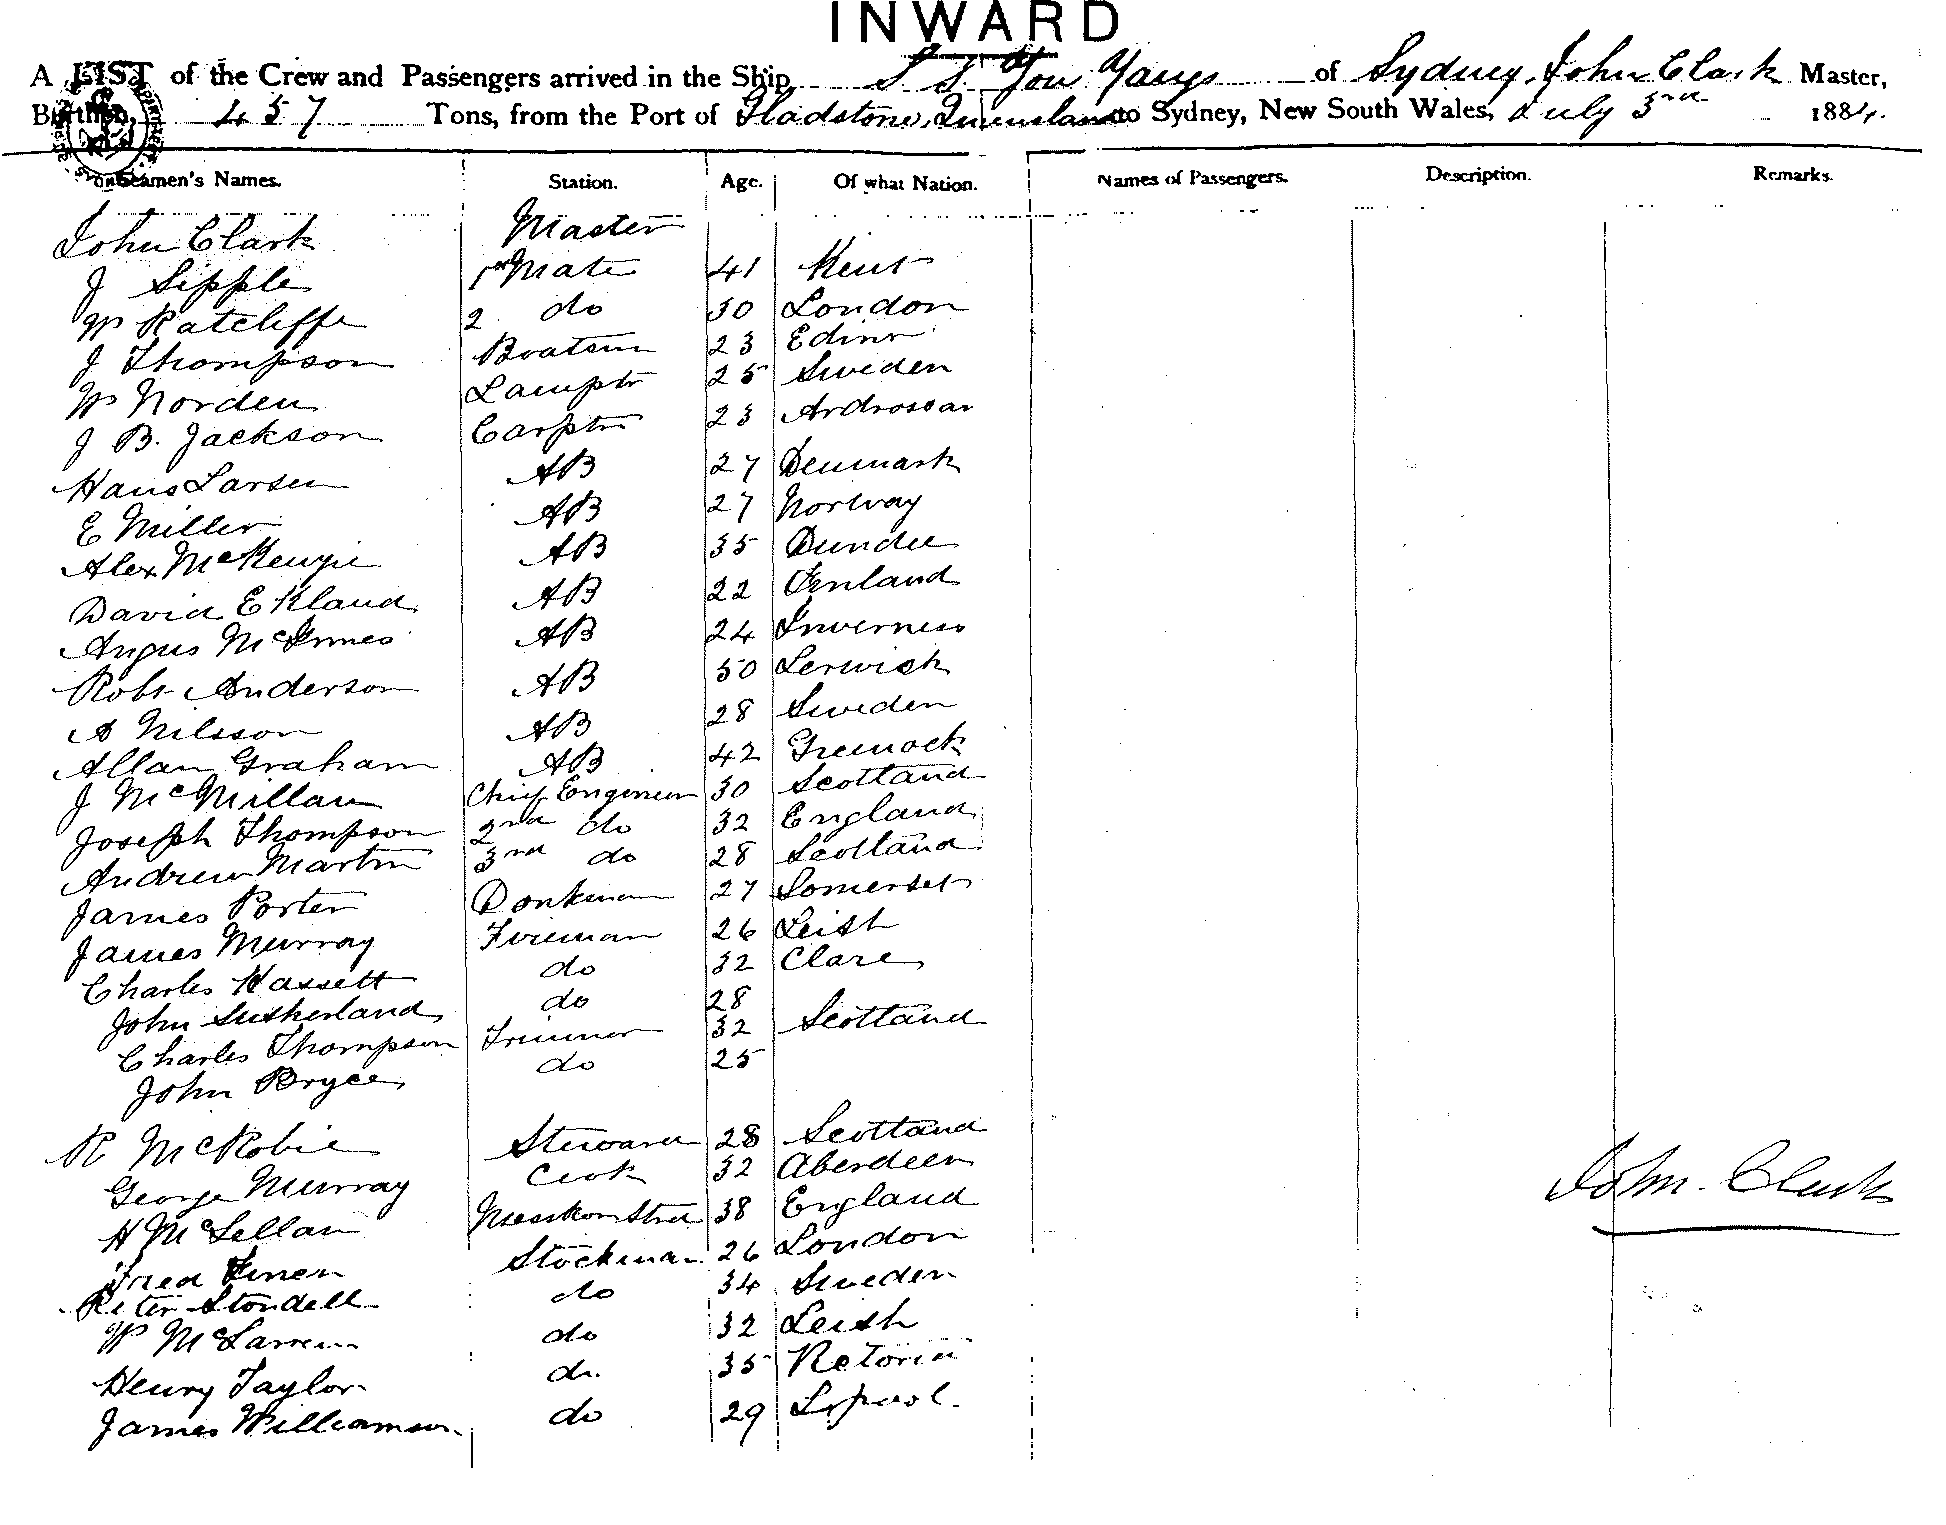 INWARD
A LIST of the Crew and Passengers arrived in the Ship S S You Yangs of Sydney, John Clark Master,
Burthen, 457 Tons, from the Port of Gladstone, Queensland to Sydney, New South Wales, July 3rd 1884.
Seamen's Names. Station. Age. Of what Nation. Names of Passengers. Description. Remarks.
John Clark Master
J Sipple 1st Mate 41 Kent
W Ratcliffe 2 do 30 London
J Thompson Boatsn 23 Edinr
W Norden Lamptr 25 Sweden
J B. Jackson Carptr 23 Ardrossan
Hans Larsen AB 27 Denmark
E Miller AB 27 Norway
Alex McKenzie AB 35 Dundee
David Ekland AB 22 Finland
Angus McInnes AB 24 Inverness
Robt Anderson AB 50 Lerwick
A Nilsson AB 28 Sweden
Allan Graham AB 42 Greenock
J McMillan Chief Engineer 30 Scotland
Joseph Thompson 2nd do 32 England
Andrew Martin 3rd do 28 Scotland
James Porter Donkman 27 Somerset
James Murray Fireman 26 Leith
Charles Hassett do 32 Clare
John Sutherland do 28
Charles Thompson Trimmer 32 Scotland
John Bryce do 25
R McRobie Steward 28 Scotland
George Murray Cook 32 Aberdeen
H McLellan Messroom Strd 38 England
Fred Stockman 26 London
Peter Stondell do 34 Sweden
W McLarren do 32 Leith
Henry Taylor do. 35
James Williamson do 29 Lpool.
John Clark